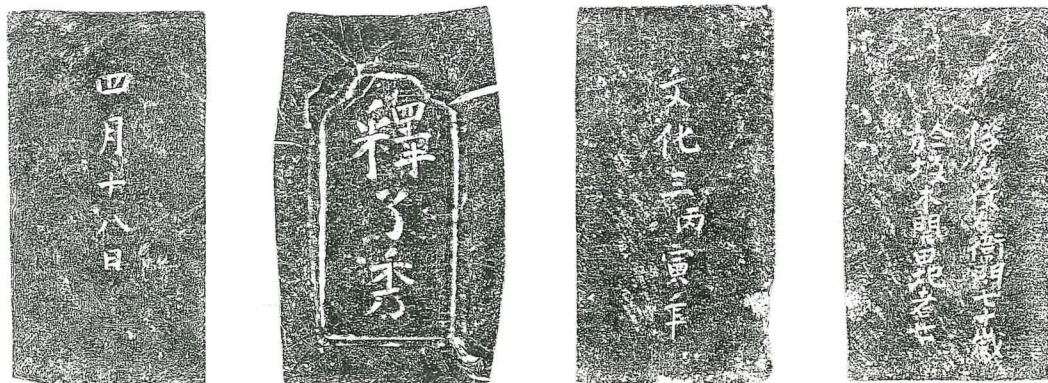 四月十八日
釋了秀
文化三丙寅年
俗名 衛門七十歳
於坂本開田地